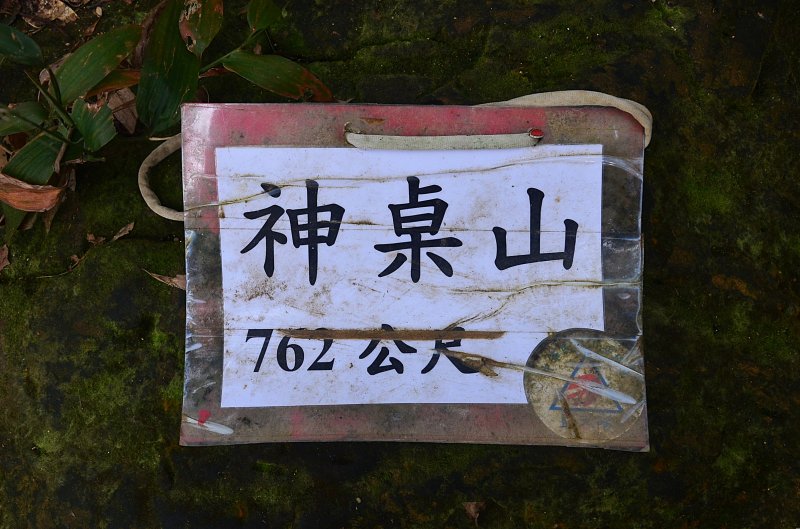 神桌山
762 公尺